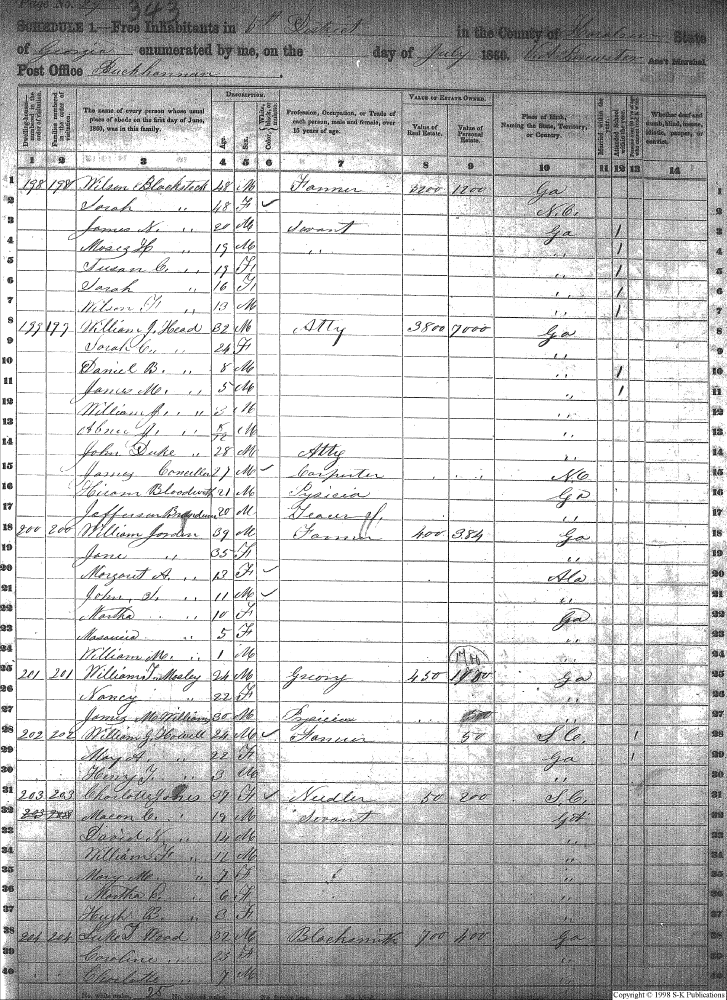 Page No. 27
343
SCHEDULE 1.—Free Inhabitants in 6th District in the County of State
of Georgia enumerated by me, on the day of July 1860. Ass't Marshal.
Post Office Buchhannan
DESCRIPTION.
VALUE OF ESTATE OWNED.
Dwelling-houses—numbered in the order of visitation.
Families numbered in the order of visitation.
The name of every person whose usual place of abode on the first day of June, 1860, was in this family.
Age.
Sex.
Color, White, black, or mulatto.
Profession, Occupation, or Trade of each person, male and female, over 15 years of age.
Value of Real Estate.
Value of Personal Estate.
Place of Birth, Naming the State, Territory, or Country.
Married within the year.
Attended School within the year.
Whether deaf and dumb, blind, insane, idiotic, pauper, or convict.
1 2 3 4 5 6 7 8 9 10 11 12 13 14
1 198 198 Wilson Blackstock 48 M Farmer 1200 Ga 1
2 Sarah " 48 F ✓ N.C. 2
3 James N. " 20 M Servant Ga / 3
4 Moses H " 19 M " " / 4
5 Susan C. " 19 F " / 5
6 Sarah " 16 F " / 6
7 Wilson F. " 13 M " / 7
8 199 199 William J. Head 32 M Atty 3800 7000 Ga 8
9 Sarah C. " 24 F " 9
10 Daniel B. " 8 M " / 10
11 James M. " 5 M " / 11
12 William J. " 3 M " 12
13 Abner J. " M " 13
14 John Duke " 28 M Atty " 14
15 James 27 M ✓ Carpenter N.C 15
16 Hiram Bloodworth 21 M Pysicia Ga 16
17 Jefferson 20 M " 17
18 200 200 William Jordan 39 M Farmer 400 384 Ga 18
19 Jane " 35 F " 19
20 Margaret A. " 13 F ✓ Ala 20
21 John " 11 M ✓ " 21
22 Martha " 10 F Ga 22
23 5 F " 23
24 William M. " 1 M " 24
25 201 201 William T. Mosley 24 M Grocry 450 Ga 25
26 Nancy " 22 F " 26
27 James McWilliams 30 M Pysician " 27
28 202 202 William G Howell 24 M ✓ Farmer 50 S.C. / 28
29 Mary A. " 22 F Ga / 29
30 Henry T. " 3 M " 30
31 203 203 Charlotte Jones 39 F ✓ Needler 50 200 S.C. 31
32 Macon C. " 19 M Servant Ga 32
33 David N. " 14 M " 33
34 William F. " 11 M " 34
35 Mary M. " 7 F " 35
36 Martha C. " 6 F " 36
37 Hugh B. " 3 F " 37
38 204 204 Luke T Wood 32 M Blacksmith 700 400 Ga 38
39 Caroline " 23 F " 39
40 Charlotte " 7 M " 40
No. white males, 25
Copyright © 1998 S-K Publications